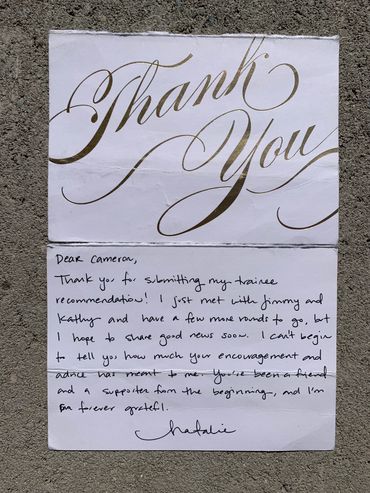 Thank
You
Dear Cameron,
Thank you for submitting my trainee
recommendation! I just met with Jimmy and
Kathy and have a few more rounds to go, but
I hope to share good news soon. I can't begin
to tell you how much your encouragement and
advice has meant to me. You've been a friend
and a supporter from the beginning, and I'm
forever grateful.
Natalie